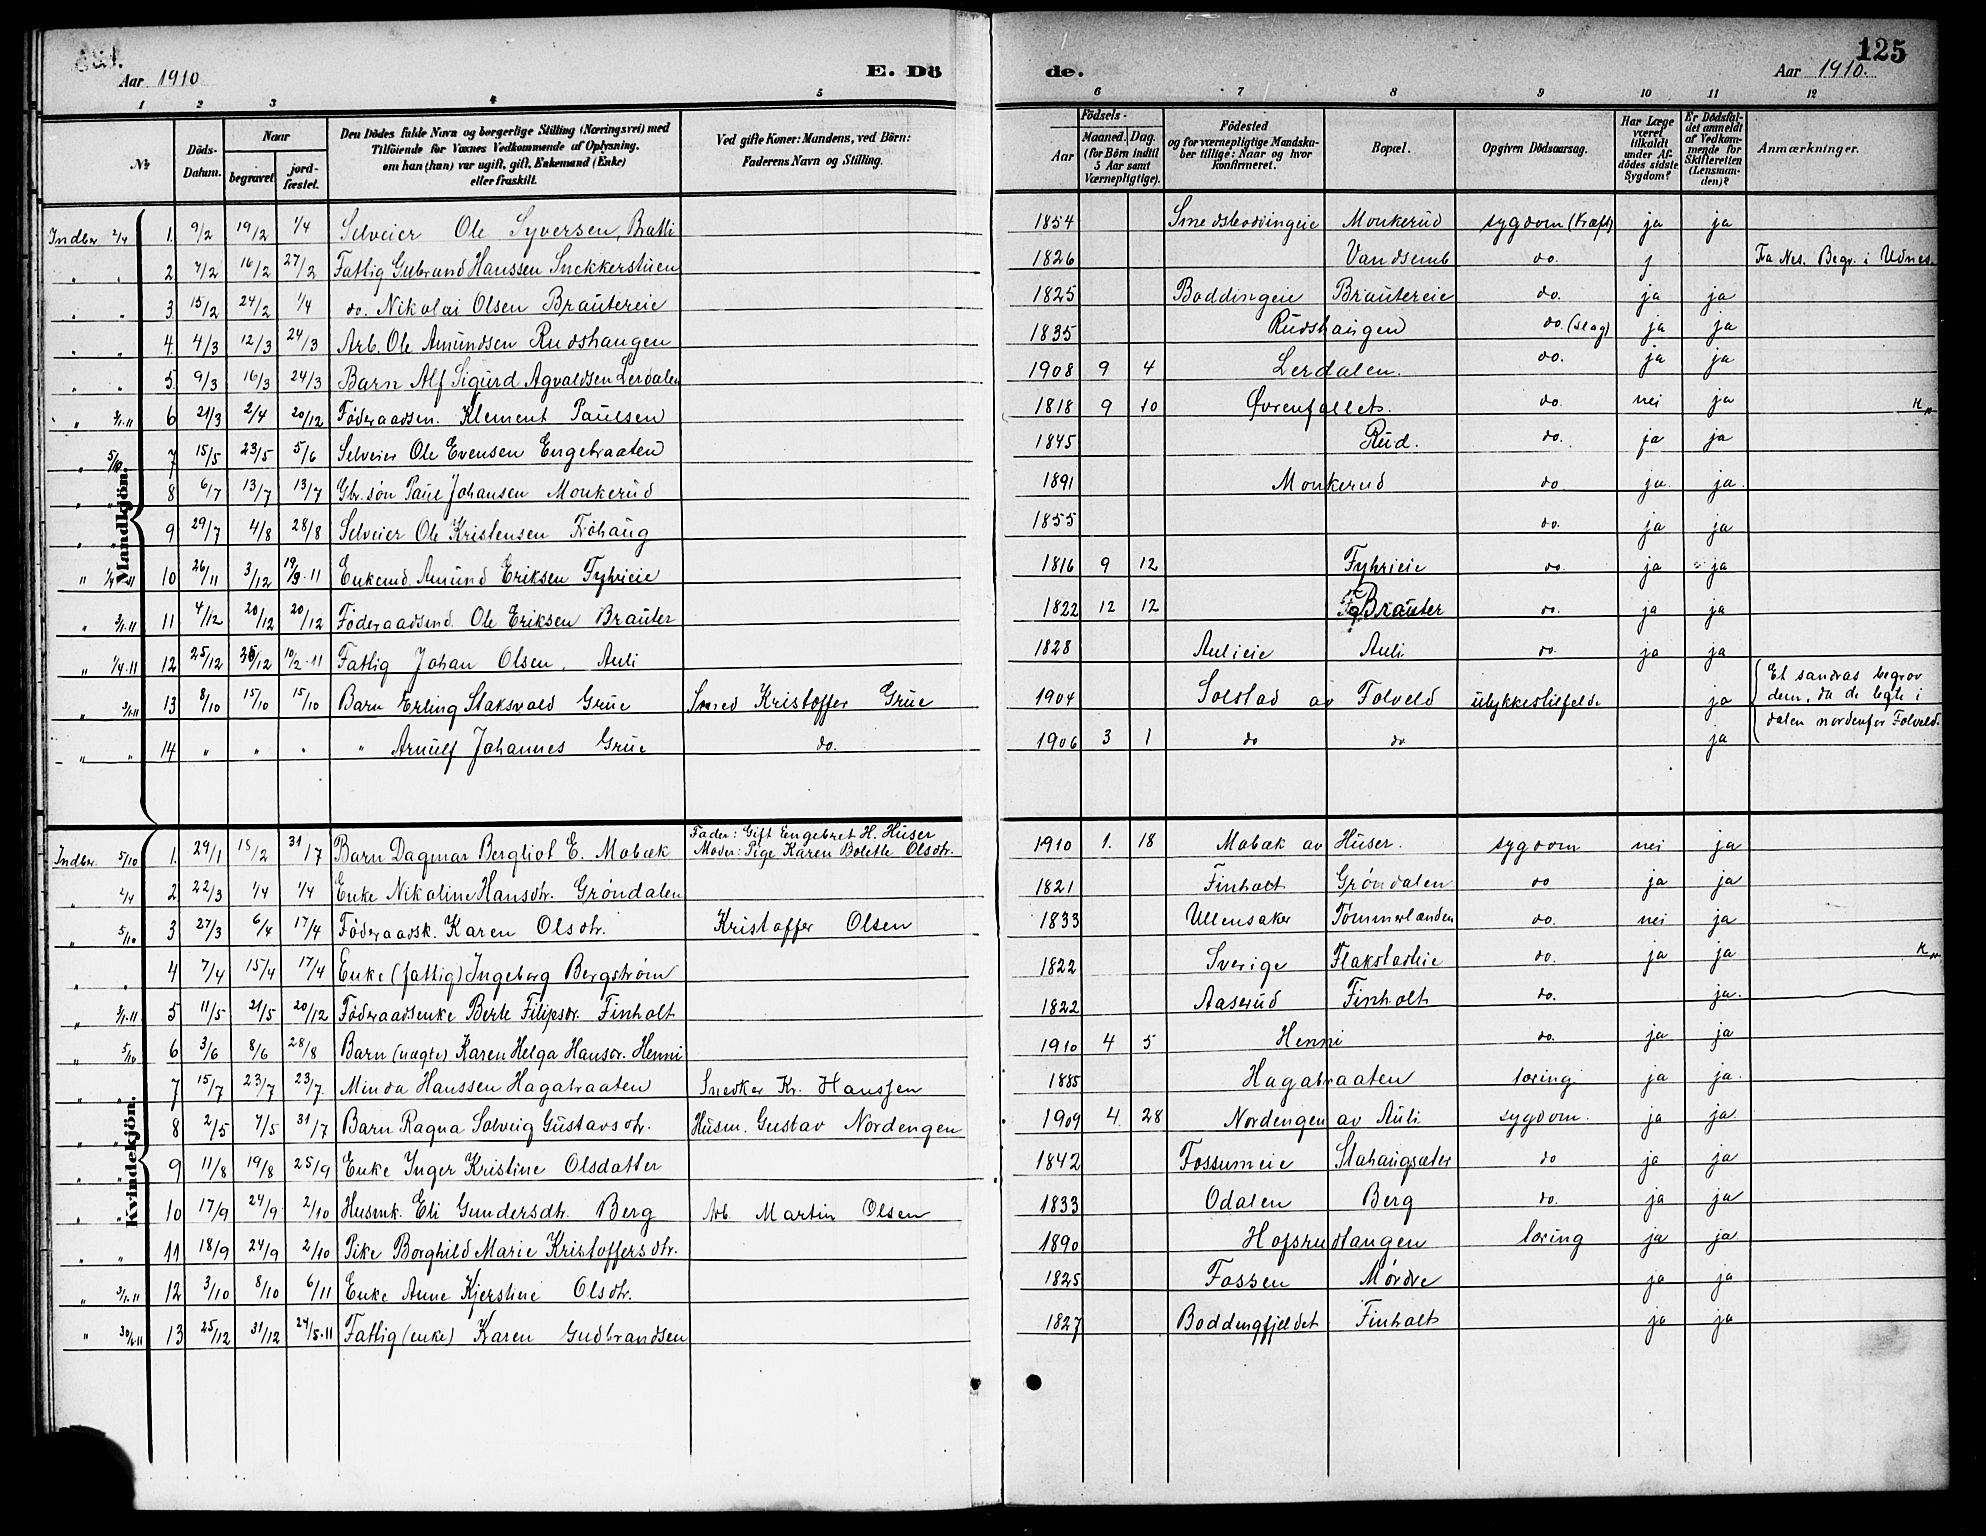 Aar 1910
E. Dö
de.
Aar 1910.
125
1 2 3 4 5
6 7 8 9 10 11 12
No
Döds-Datum.
Naar
begravet.
jordfæstet.
Den Dödes fulde Navn og borgerlige Stilling (Næringsvei) med
Tilföiende for Voxnes Vedkommende af Oplysning,
om han (hun) var ugift, gift, Enkemand (Enke)
eller fraskilt.
Ved gifte Koner: Mandens, ved Börn:
Faderens Navn og Stilling.
Födsels-
Aar
Maaned. Dag.
(for Börn indtil
5 Aar samt
Værnepligtige).
Födested
og for værnepligtige Mandska-
ber tillige: Naar og hvor
konfirmeret.
Bopæl.
Opgiven Dödsaarsag.
Har Læge
været
tilkaldt
under Af-
dödes sidste
Sygdom?
Er Dödsfal-
det anmeldt
af Vedkom-
mende for
Skifteretten
(Lensman-
den)?
Anmærkninger.
Mandkjön.
Indber. 2/4 1. 9/2 19/2 1/4 Selveier Ole Syversen, Bratli 1854 Smedsboddingeie Monkerud sygdom (kræft) ja ja
" " 2 7/2 16/2 27/2 Fattig Gulbrand Hanssen Snekkerstuen 1826 Vandsemb do. j Fra Nes. Begr. i Udnes.
" " 3 15/2 24/2 1/4 do. Nikolai Olsen Brautereie 1825 Boddingeie Brautereie do. ja ja
" " 4. 4/3 12/3 24/3 Arb. Ole Amundsen Rudshaugen 1835 Rudshaugen do. (slag) ja ja
" " 5. 9/3 16/3 24/3 Barn Alf Sigurd Agvaldsen Lerdalen 1908 9 4 Lerdalen. do. ja ja
" 3/1.11 6 21/3 2/4 20/12 Föderaadsm. Klement Paulsen 1818 9 10 Øvrenfallet. do. nei ja
" 5/10. 7 15/5 23/5 5/6 Selveier Ole Evensen Engebraaten 1845 Rud. do. ja ja
" " 8 6/7 13/7 13/7 Gbr. søn Paul Johansen Monkerud 1891 Monkerud do. ja. ja.
" " 9 29/7 4/8 28/8 Selveier Ole Kristensen Frøhaug 1855 do. ja ja
" 1/4.11 10 26/11 3/12 19/3.11 Enkemd. Amund Eriksen Fyhrieie 1816 9 12 Fyhrieie do. ja ja
" 3/1.11 11 4/12 20/12 20/12 Föderaadsmd. Ole Eriksen Brauter 1822 12 12 Brauter do. ja ja
" 1/4.11 12 25/12 /12 10/2.11 Fattig Johan Olsen, Auli 1828 Aulieie Auli do. ja ja
" 3/1.11 13 8/10 15/10 15/10 Barn Erling Staksvold Grue Smed Kristoffer Grue 1904 Solstad av Folveld ulykkestilfelde ja
Et sandras begrov
dem, da de legte i
dalen nordenfor Folveld.
" " 14 " " " " Arnulf Johannes Grue do. 1906 3 1 do do ja
Kvindekjön.
Fader: Gift Engebret H. Huser
Indber. 5/10 1. 29/1 18/2 31/7 Barn Dagmar Bergliot E. Mobæk Moder: Pige Karen Bolette Olsdtr. 1910 1. 18 Mobæk av Huser. sygdom nei ja
" 2/4 2 22/3 1/4 1/4 Enke Nikoline Hansdtr. Grøndalen 1821 Finholt Grøndalen do ja ja
" 5/10 3 27/3 6/4 17/4 Föderaadsk. Karen Olsdtr. Kristoffer Olsen 1833 Ullensaker Tømmerlanden do. nei ja
" " 4 7/4 15/4 17/4 Enke (fattig) Ingeborg Bergstrøm 1822 Sverige Flakstadeie do. ja ja
" 3/1.11 5 11/5 21/5 20/12 Föderaadsenke Berte Filipsdr. Finholt 1822 Aaserud Finholt do. ja.
" 5/10 6 3/6 8/6 28/8 Barn (uægte) Karen Helga Hansdr. Henni 1910 4 5 Henni do. ja ja
" " 7 15/7 23/7 23/7. Minda Hanssen Hagabraaten Snedker Kr. Hanssen 1885 Hagabraaten tæring ja ja.
" " 8 2/5 7/5 31/7 Barn Ragna Solveig Gustavsdtr. Husm. Gustav Nordengen 1909 4 28 Nordengen av Auli sygdom. ja ja
" " 9 11/8 19/8 25/9 Enke Inger Kristine Olsdatter 1842 Fossumeie Stahaugsæter do ja ja
" " 10 17/9 24/9 2/10 Husmk. Eli Gundersdtr. Berg Arb. Martin Olsen 1833 Odalen Berg do. ja ja
" " 11 18/9 24/9 2/10 Pike Borghild Marie Kristoffersdtr. 1890 Hofsrudtangen tæring ja ja
" 3/1.11 12 3/10 8/10 6/11 Enke Anne Kjerstine Olsdtr. 1825 Fossen Mørdre ja ja
" 30/6.11 13 25/12 31/12 24/5.11 Fattig (enke) Karen Gudbrandsen 1827 Boddingfjeldet Finholt ja ja